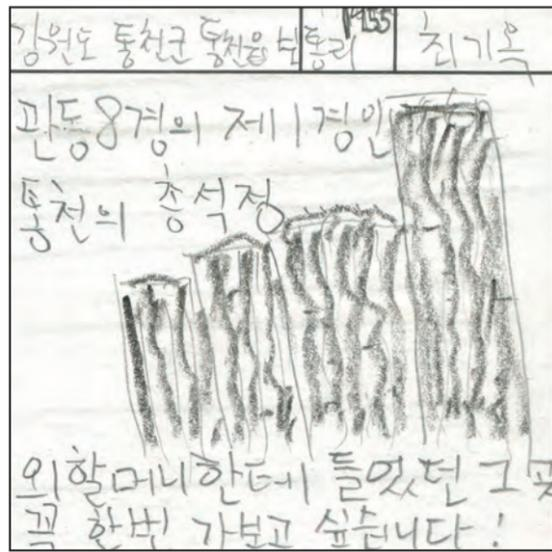 강원도 통천군 통천읍 보통리 1955 최기옥
관동8경의 제1경인
통천의 총석정
외할머니한테 들었던 그곳
꼭 한번 가보고 싶습니다!